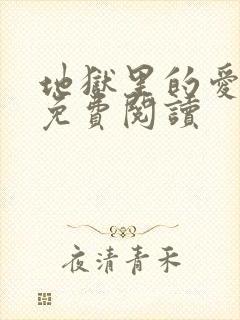 地獄里的愛
免費閱讀
夜清青禾